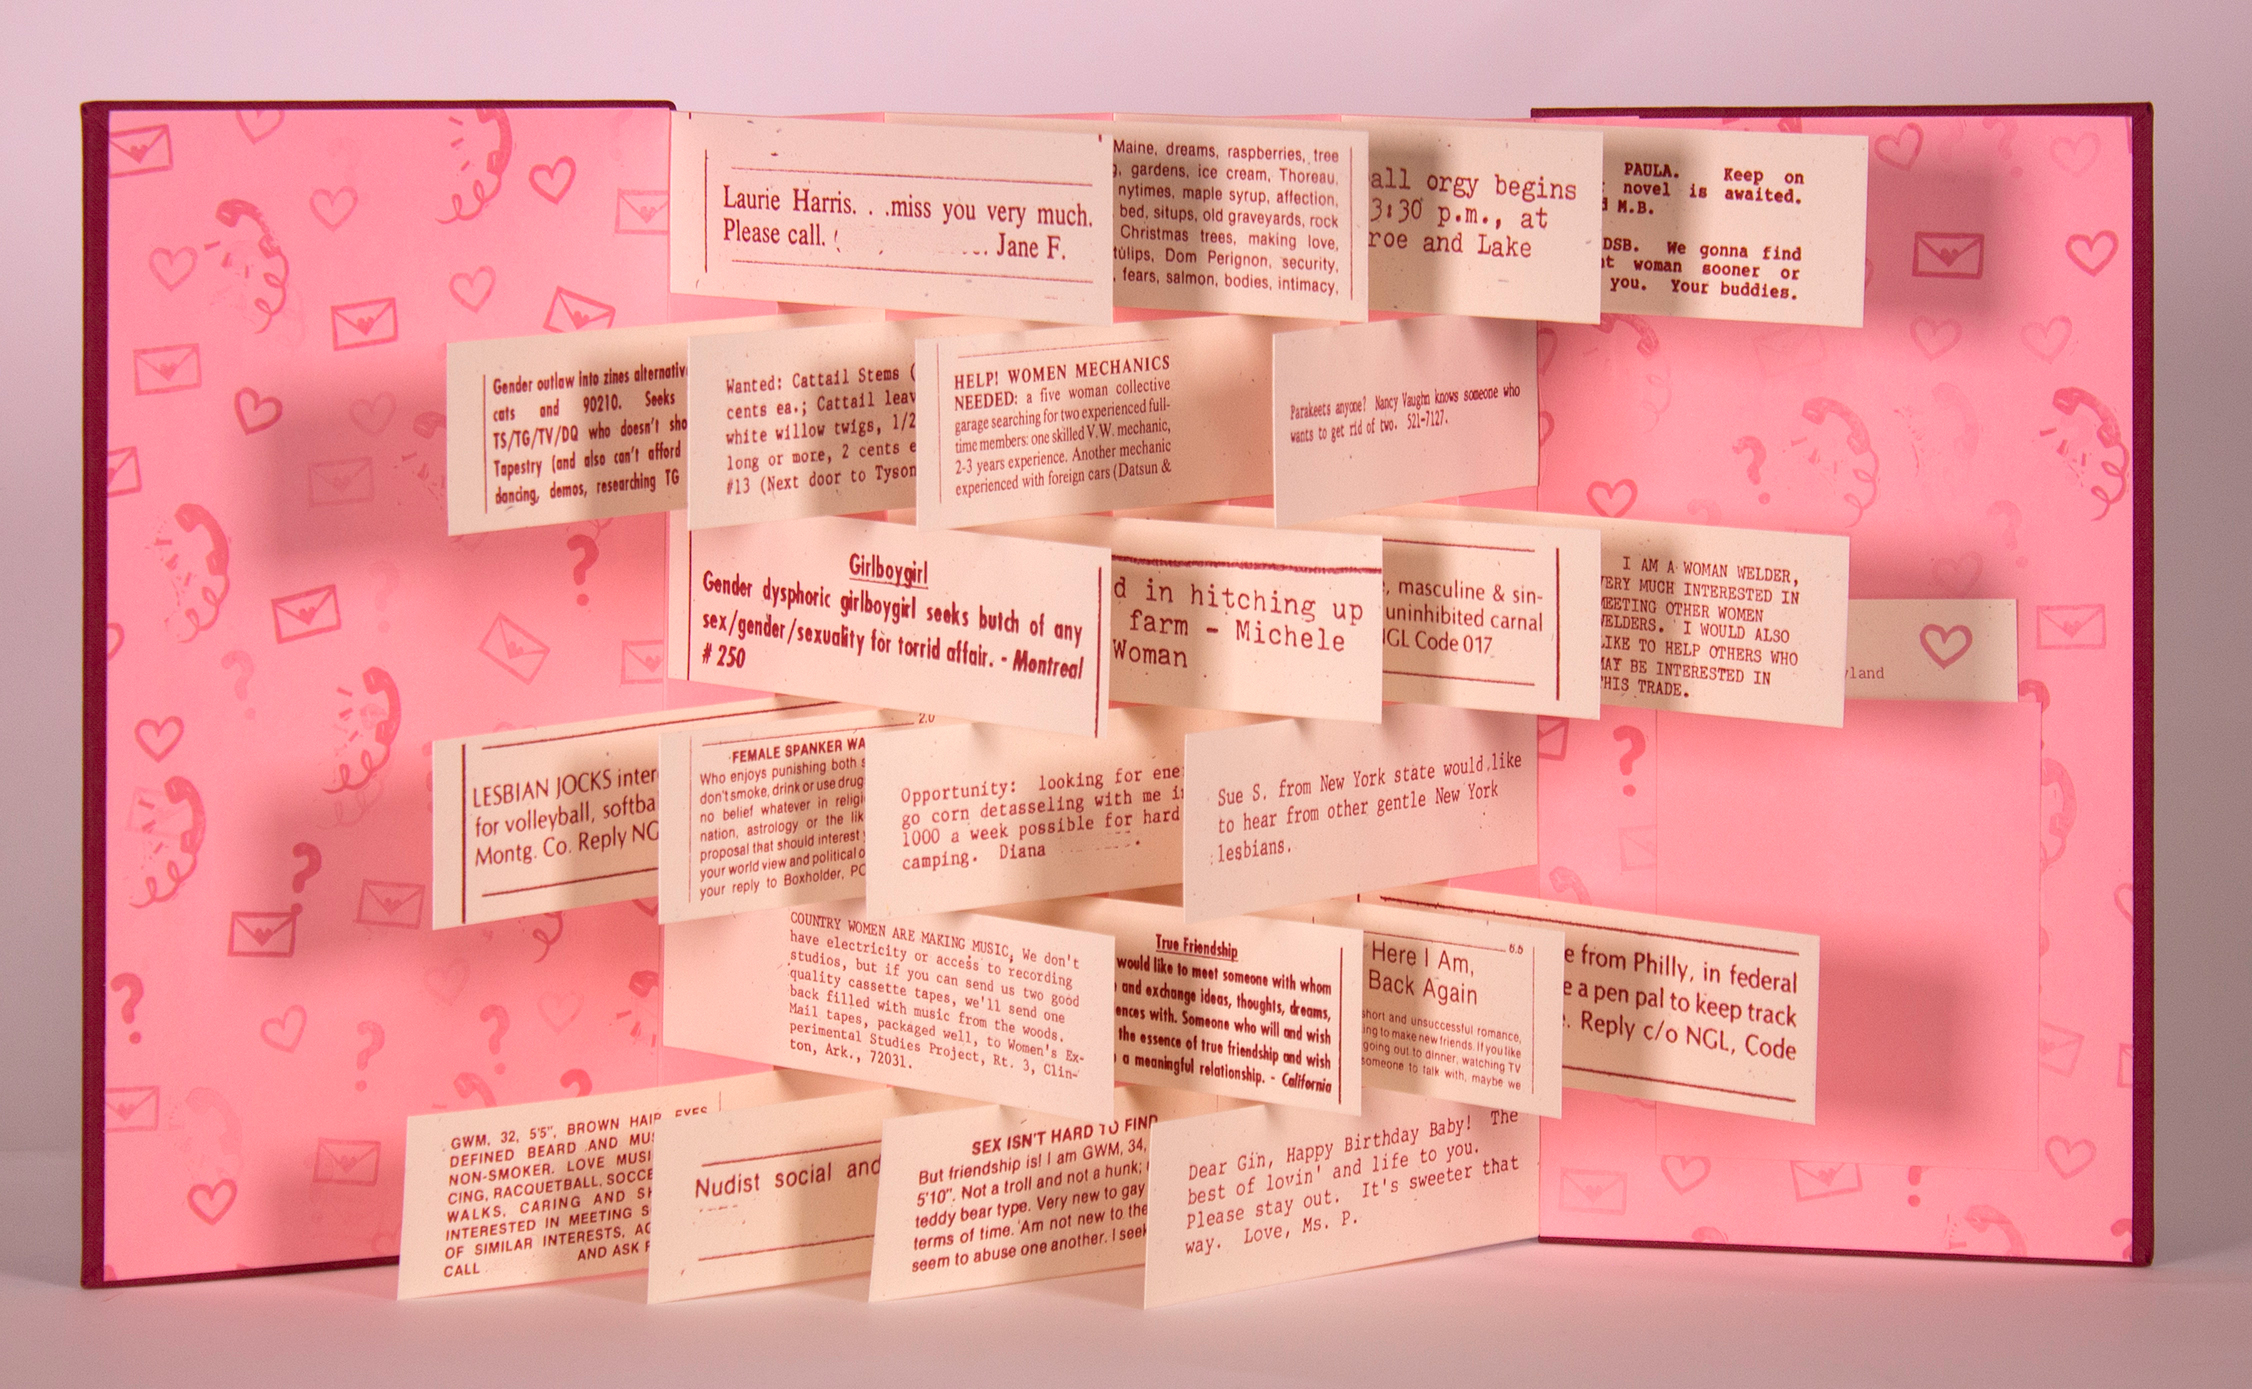 Laurie Harris. . .miss you very much.
Please call. Jane F.
Maine, dreams, raspberries, tree
gardens, ice cream, Thoreau,
nytimes, maple syrup, affection,
bed, situps, old graveyards, rock
Christmas trees, making love,
tulips, Dom Perignon, security,
fears, salmon, bodies, intimacy,
all orgy begins
3:30 p.m., at
roe and Lake
PAULA. Keep on
novel is awaited.
M.B.
DSB. We gonna find
woman sooner or
you. Your buddies.
Gender outlaw into zines alternativ
cats and 90210. Seeks
TS/TG/TV/DQ who doesn't sho
Tapestry (and also can't afford
dancing, demos, researching TG
Wanted: Cattail Stems (
cents ea.; Cattail leav
white willow twigs, 1/2
long or more, 2 cents e
#13 (Next door to Tyson
HELP! WOMEN MECHANICS
NEEDED: a five woman collective
garage searching for two experienced full-
time members: one skilled V.W. mechanic,
2-3 years experience. Another mechanic
experienced with foreign cars (Datsun &
Parakeets anyone? Nancy Vaughn knows someone who
wants to get rid of two. 521-7127.
Girlboygirl
Gender dysphoric girlboygirl seeks butch of any
sex/gender/sexuality for torrid affair. - Montreal
# 250
d in hitching up
farm - Michele
Woman
, masculine & sin-
uninhibited carnal
NGL Code 017
I AM A WOMAN WELDER,
VERY MUCH INTERESTED IN
MEETING OTHER WOMEN
WELDERS. I WOULD ALSO
LIKE TO HELP OTHERS WHO
MAY BE INTERESTED IN
THIS TRADE.
yland
LESBIAN JOCKS inter
for volleyball, softba
Montg. Co. Reply NG
2.0
FEMALE SPANKER WA
Who enjoys punishing both s
don't smoke, drink or use drug
no belief whatever in religi
nation, astrology or the lik
proposal that should interest
your world view and political o
your reply to Boxholder, PO
Opportunity: looking for ene
go corn detasseling with me i
1000 a week possible for hard
camping. Diana
Sue S. from New York state would like
to hear from other gentle New York
lesbians.
COUNTRY WOMEN ARE MAKING MUSIC, We don't
have electricity or access to recording
studios, but if you can send us two good
quality cassette tapes, we'll send one
back filled with music from the woods.
Mail tapes, packaged well, to Women's Ex-
perimental Studies Project, Rt. 3, Clin-
ton, Ark., 72031.
True Friendship
would like to meet someone with whom
and exchange ideas, thoughts, dreams,
ences with. Someone who will and wish
the essence of true friendship and wish
a meaningful relationship. - California
6.5
Here I Am,
Back Again
short and unsuccessful romance,
ing to make new friends. If you like
going out to dinner, watching TV
someone to talk with, maybe we
e from Philly, in federal
e a pen pal to keep track
. Reply c/o NGL, Code
GWM, 32, 5'5", BROWN HAIR, EYES
DEFINED BEARD AND MU
NON-SMOKER. LOVE MUSI
CING, RACQUETBALL, SOCCE
WALKS. CARING AND SH
INTERESTED IN MEETING S
OF SIMILAR INTERESTS, AG
AND ASK F
CALL
Nudist social and
SEX ISN'T HARD TO FIND
But friendship is! I am GWM, 34,
5'10". Not a troll and not a hunk;
teddy bear type. Very new to gay
terms of time. Am not new to the
seem to abuse one another. I seek
Dear Gin, Happy Birthday Baby! The
best of lovin' and life to you.
Please stay out. It's sweeter that
way. Love, Ms. P.